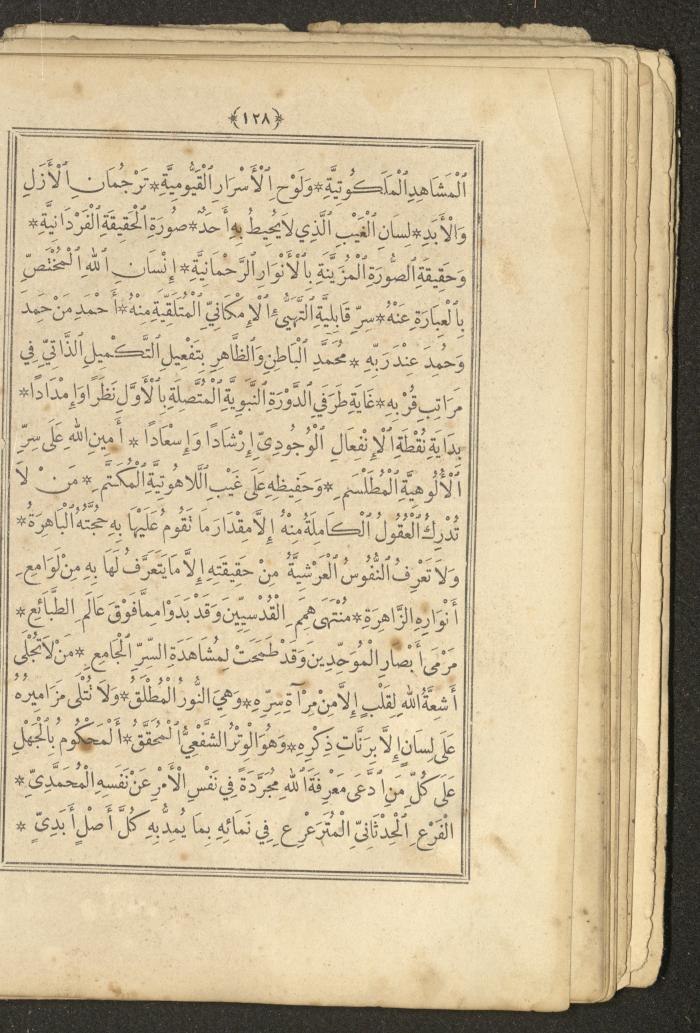 ﴿١٢٨﴾
ٱلْمَشَاهِدِ ٱلْمَلَكُوتِيَّةِ * وَلَوْحِ ٱلْأَسْرَارِ ٱلْقَيُّومِيَّةِ * تَرْجُمَانِ ٱلْأَزَلِ
وَٱلْأَبَدِ * لِسَانِ ٱلْغَيْبِ ٱلَّذِي لَا يُحِيطُ بِهِ أَحَدٌ * صُورَةِ ٱلْحَقِيقَةِ ٱلْفَرْدَانِيَّةِ *
وَحَقِيقَةِ ٱلصُّورَةِ ٱلْمُزَيَّنَةِ بِٱلْأَنْوَارِ ٱلرَّحْمَانِيَّةِ * إِنْسَانِ ٱللهِ ٱلْمُخْتَصِّ
بِٱلْعِبَارَةِ عَنْهُ * سِرِّ قَابِلِيَّةِ ٱلتَّهَيُّءِ ٱلْإِمْكَانِيِّ ٱلْمُتَلَقِّيَةِ مِنْهُ * أَحْمَدِ مَنْ حَمِدَ
وَحُمِدَ عِنْدَ رَبِّهِ * مُحَمَّدِ ٱلْبَاطِنِ وَٱلظَّاهِرِ بِتَفْعِيلِ ٱلتَّكْمِيلِ ٱلذَّاتِيِّ فِي
مَرَاتِبِ قُرْبِهِ * غَايَةِ طَرَفَيِ ٱلدَّوْرَةِ ٱلنَّبَوِيَّةِ ٱلْمُتَّصِلَةِ بِٱلْأَوَّلِ نَظَرًا وَإِمْدَادًا *
بِدَايَةِ نُقْطَةِ ٱلْإِنْفِعَالِ ٱلْوُجُودِيِّ إِرْشَادًا وَإِسْعَادًا * أَمِينِ ٱللهِ عَلَى سِرِّ
ٱلْأُلُوهِيَّةِ ٱلْمُطَلْسَمِ * وَحَفِيظِهِ عَلَى غَيْبِ ٱللَّاهُوتِيَّةِ ٱلْمُكَتَّمِ * مَنْ لَا
تُدْرِكُ ٱلْعُقُولُ ٱلْكَامِلَةُ مِنْهُ إِلَّا مِقْدَارَ مَا تَقُومُ عَلَيْهَا بِهِ حُجَّتُهُ ٱلْبَاهِرَةُ *
وَلَا تَعْرِفُ ٱلنُّفُوسُ ٱلْعَرْشِيَّةُ مِنْ حَقِيقَتِهِ إِلَّا مَا يَتَعَرَّفُ لَهَا بِهِ مِنْ لَوَامِعِ
أَنْوَارِهِ ٱلزَّاهِرَةِ * مُنْتَهَى هِمَمِ ٱلْقُدْسِيِّينَ وَقَدْ بَدَوْا مِمَّا فَوْقَ عَالَمِ ٱلطَّبَائِعِ *
مَرْمَى أَبْصَارِ ٱلْمُوَحِّدِينَ وَقَدْ طَمَحَتْ لِمُشَاهَدَةِ ٱلسِّرِّ ٱلْجَامِعِ * مَنْ لَا تُجْلَى
أَشِعَّةُ ٱللهِ لِقَلْبٍ إِلَّا مِنْ مِرْآةِ سِرِّهِ * وَهِيَ ٱلنُّورُ ٱلْمُطْلَقُ * وَلَا تُتْلَى مَزَامِيرُهُ
عَلَى لِسَانٍ إِلَّا بِرَنَّاتِ ذِكْرِهِ * وَهُوَ ٱلْوِتْرُ ٱلشَّفْعِيُّ ٱلْمُحَقَّقُ * ٱلْمَحْكُومِ بِٱلْجَهْلِ
عَلَى كُلِّ مَنِ ٱدَّعَى مَعْرِفَةَ ٱللهِ مُجَرَّدَةً فِي نَفْسِ ٱلْأَمْرِ عَنْ نَفَسِهِ ٱلْمُحَمَّدِيِّ *
ٱلْفَرْعِ ٱلْحِدْثَانِيِّ ٱلْمُتَرَعْرِعِ فِي نَمَائِهِ بِمَا يُمِدُّ بِهِ كُلَّ أَصْلٍ أَبَدِيٍّ *